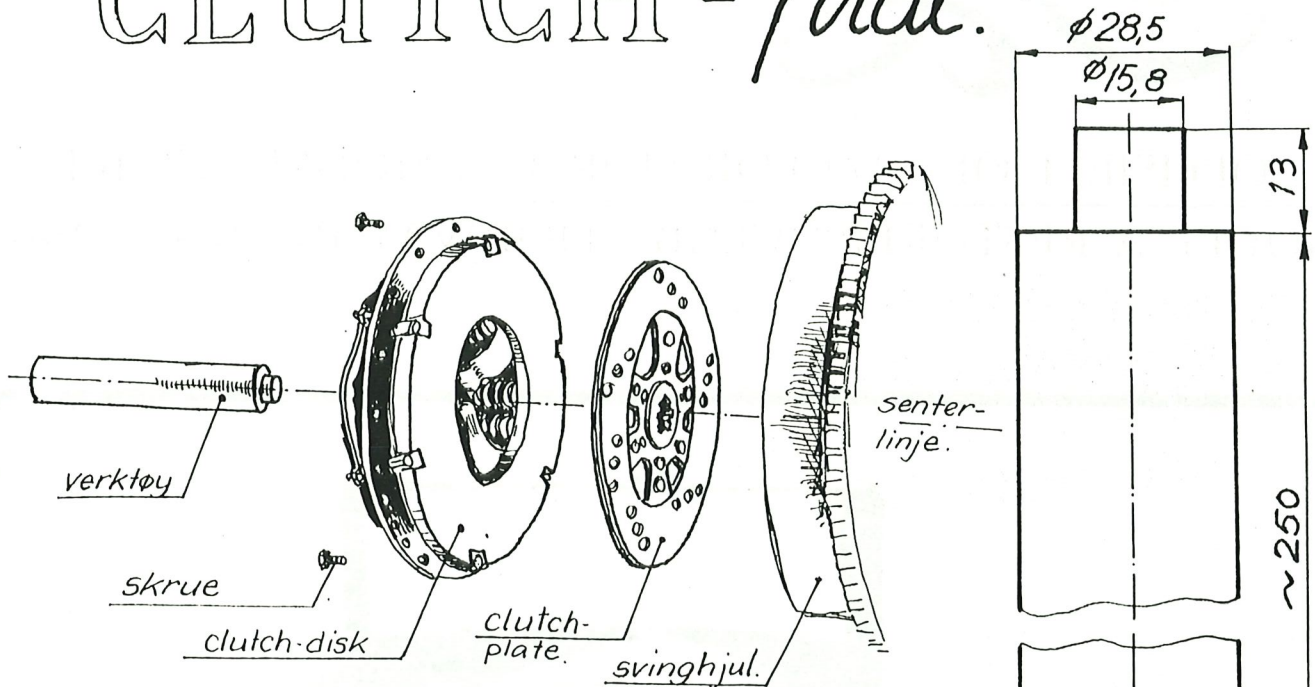 CLUTCH -
φ28,5
φ15,8
13
~250
senter-
linje.
verktøy
skrue
clutch-disk
clutch-
plate.
svinghjul.